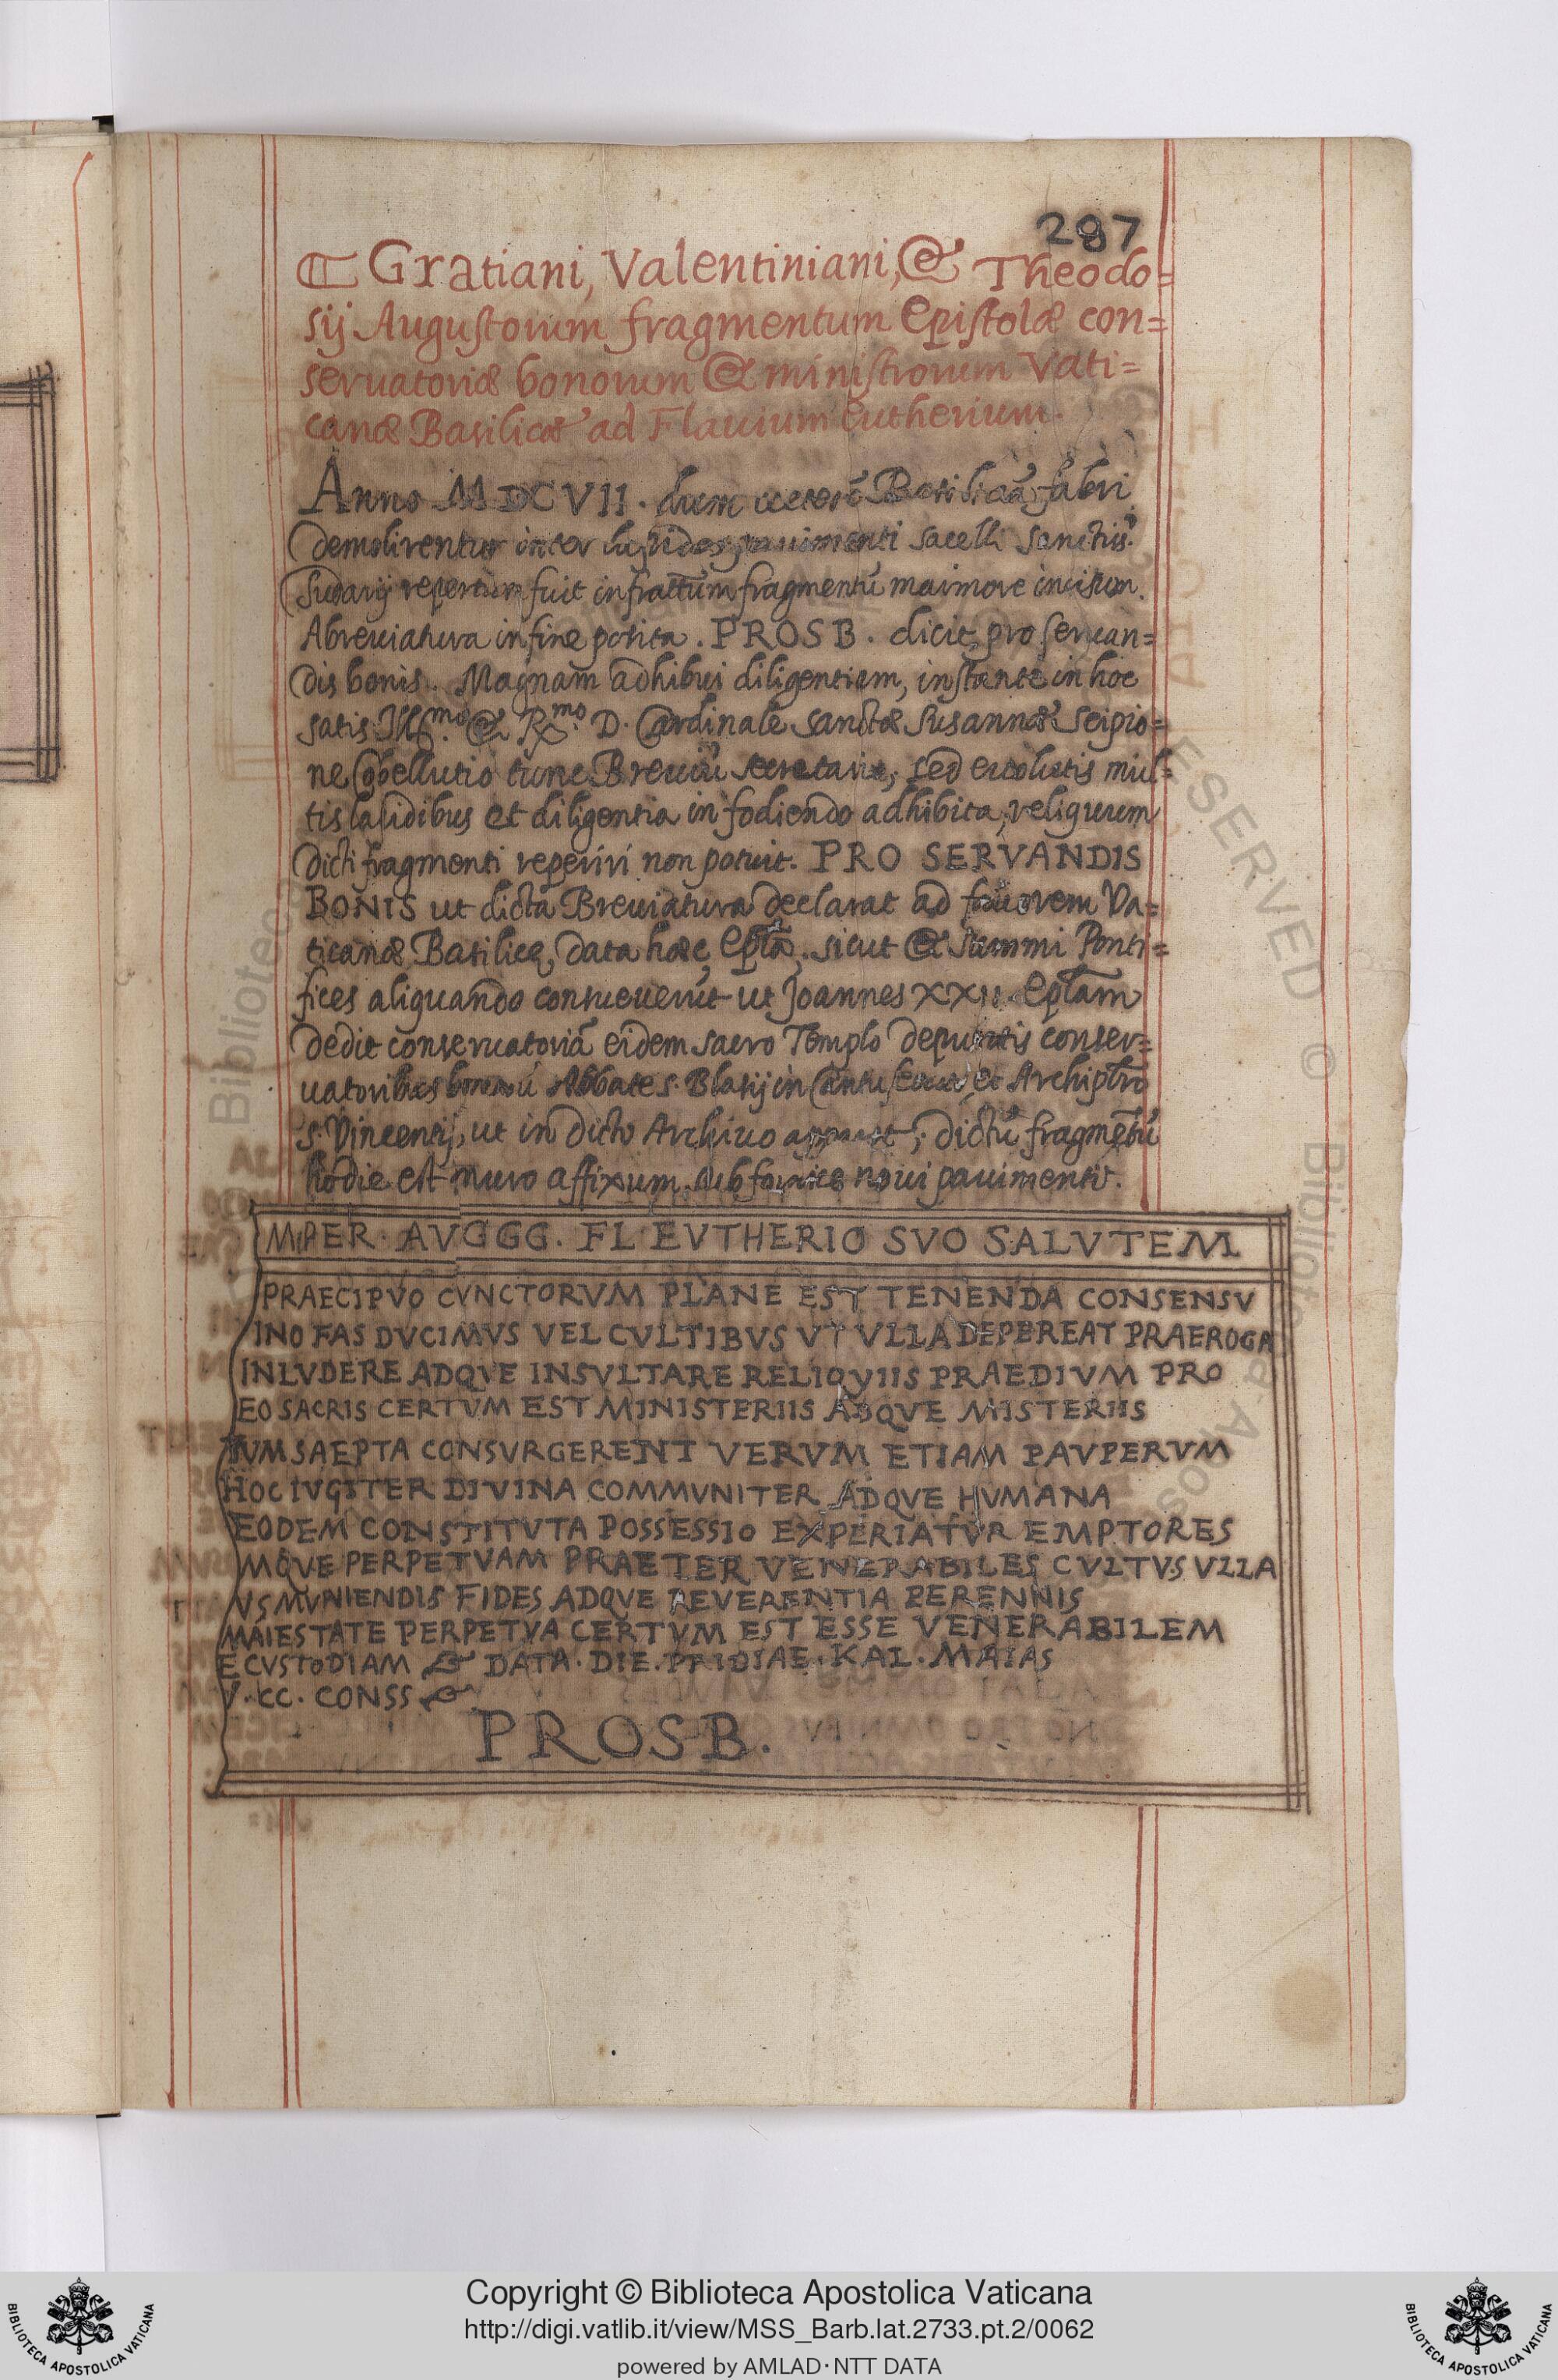 297
Gratiani, Valentiniani, & Theodo=
sij Augustorum fragmentum Epistolæ con=
seruatoriæ bonorum & ministrorum Vati=
canæ Basilicæ ad Flauium Eutherium.
Anno MDCVII. dum ueterē Basilicā fabri
demolirentur inter lapides pauimenti sacelli sanctiss.
Sudarij repertum fuit infractum fragmentū marmore incisum.
Abreuiatura in fine posita. PROSB. dicit, pro seruan=
dis bonis. Magnam adhibui diligentiam, instante in hoc
satis Ill.mo & R.mo D. Cardinale Sanctæ Susannæ Scipio=
ne Cobellutio tunc Breuiū secretario, sed euolutis mul=
tis lapidibus et diligentia in fodiendo adhibita, reliquum
dicti fragmenti reperiri non potuit. PRO SERVANDIS
BONIS ut dicta Breuiatura declarat ad fauorem Va=
ticanæ Basilicę, data hæc epła, sicut & summi Ponti=
fices aliquando consueuerūt ut Joannes XXII. epłam
dedit conseruatoriā eidem sacro Templo deputatis conser=
uatoribus bonorū Abbate S. Blasij in et Archipłro
S. Vincentij, ut in dicto Archiuo apparet; dictū fragmētū
hodie est muro affixum sub fornice noui pauimenti.
MPER. AVGGG. FL EVTHERIO SVO SALVTEM
PRAECIPVO CVNCTORVM PLANE EST TENENDA CONSENSV
INO FAS DVCIMVS VEL CVLTIBVS VT VLLA DEPEREAT PRAEROGA
INLVDERE ADQVE INSVLTARE RELIQVIIS PRAEDIVM PRO
EO SACRIS CERTVM EST MINISTERIIS ADQVE MISTERIIS
TVM SAEPTA CONSVRGERENT VERVM ETIAM PAVPERVM
HOC IVGITER DIVINA COMMVNITER ADQVE HVMANA
EODEM CONSTITVTA POSSESSIO EXPERIATVR EMPTORES
MQVE PERPETVAM PRAETER VENERABILES CVLTVS VLLA
VS MVNIENDIS FIDES ADQVE REVERENTIA PERENNIS
MAIESTATE PERPETVA CERTVM EST ESSE VENERABILEM
E CVSTODIAM DATA. DIE. PRIDIAE. KAL. MAIAS
V. CC. CONSS
PROSB.
Copyright © Biblioteca Apostolica Vaticana
http://digi.vatlib.it/view/MSS_Barb.lat.2733.pt.2/0062
powered by AMLAD·NTT DATA
BIBLIOTECA APOSTOLICA VATICANA
BIBLIOTECA APOSTOLICA VATICANA